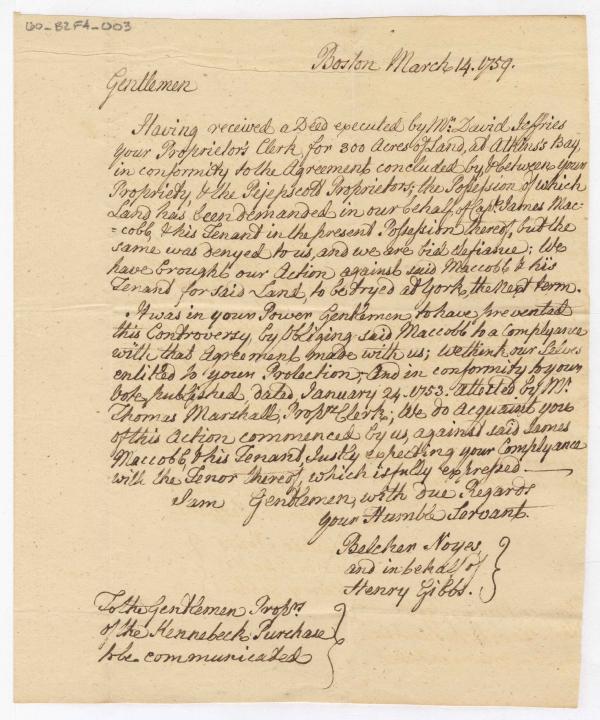 60-82F4-003
Boston March 14. 1759.
Gentlemen
Having received a Deed executed by Mr. David Jeffries
your Proprietors Clerk, for 300 Acres of Land, at Atkins's Bay,
in conformity to the Agreement concluded by & between your
Propriety, & the Pejepscott Proprietors; the Possession of which
Land has been demanded in our behalf of Capt. James Mac=
=cobb, & his Tenant in the present Possession thereof, but the
same was denyed to us, and we are bid defiance; We
have brought our Action against said Maccobb & his
Tenant for said Land, to be tryed at York, the next term.
It was in your Power Gentlemen, to have prevented
this Controversy, by Obliging said Maccobb to a Complyance
with that Agreement made with us; We think our Selves
entitled to your Protection; And in conformity to your
Vote, published, dated January 24. 1753. attested by Mr.
Thomas Marshall, Proprs. Clerk; We do Acquaint you
of this Action commenced by us, against said James
Maccobb & his Tenant, Justly expecting your Complyance
with the Tenor thereof, which is fully expressed
I am Gentlemen, with due Regards
Your Humble Servant.
Belcher Noyes,
and in behalf of
Henry Gibbs.
To the Gentlemen Proprs
of the Kennebeck Purchase
to be communicated